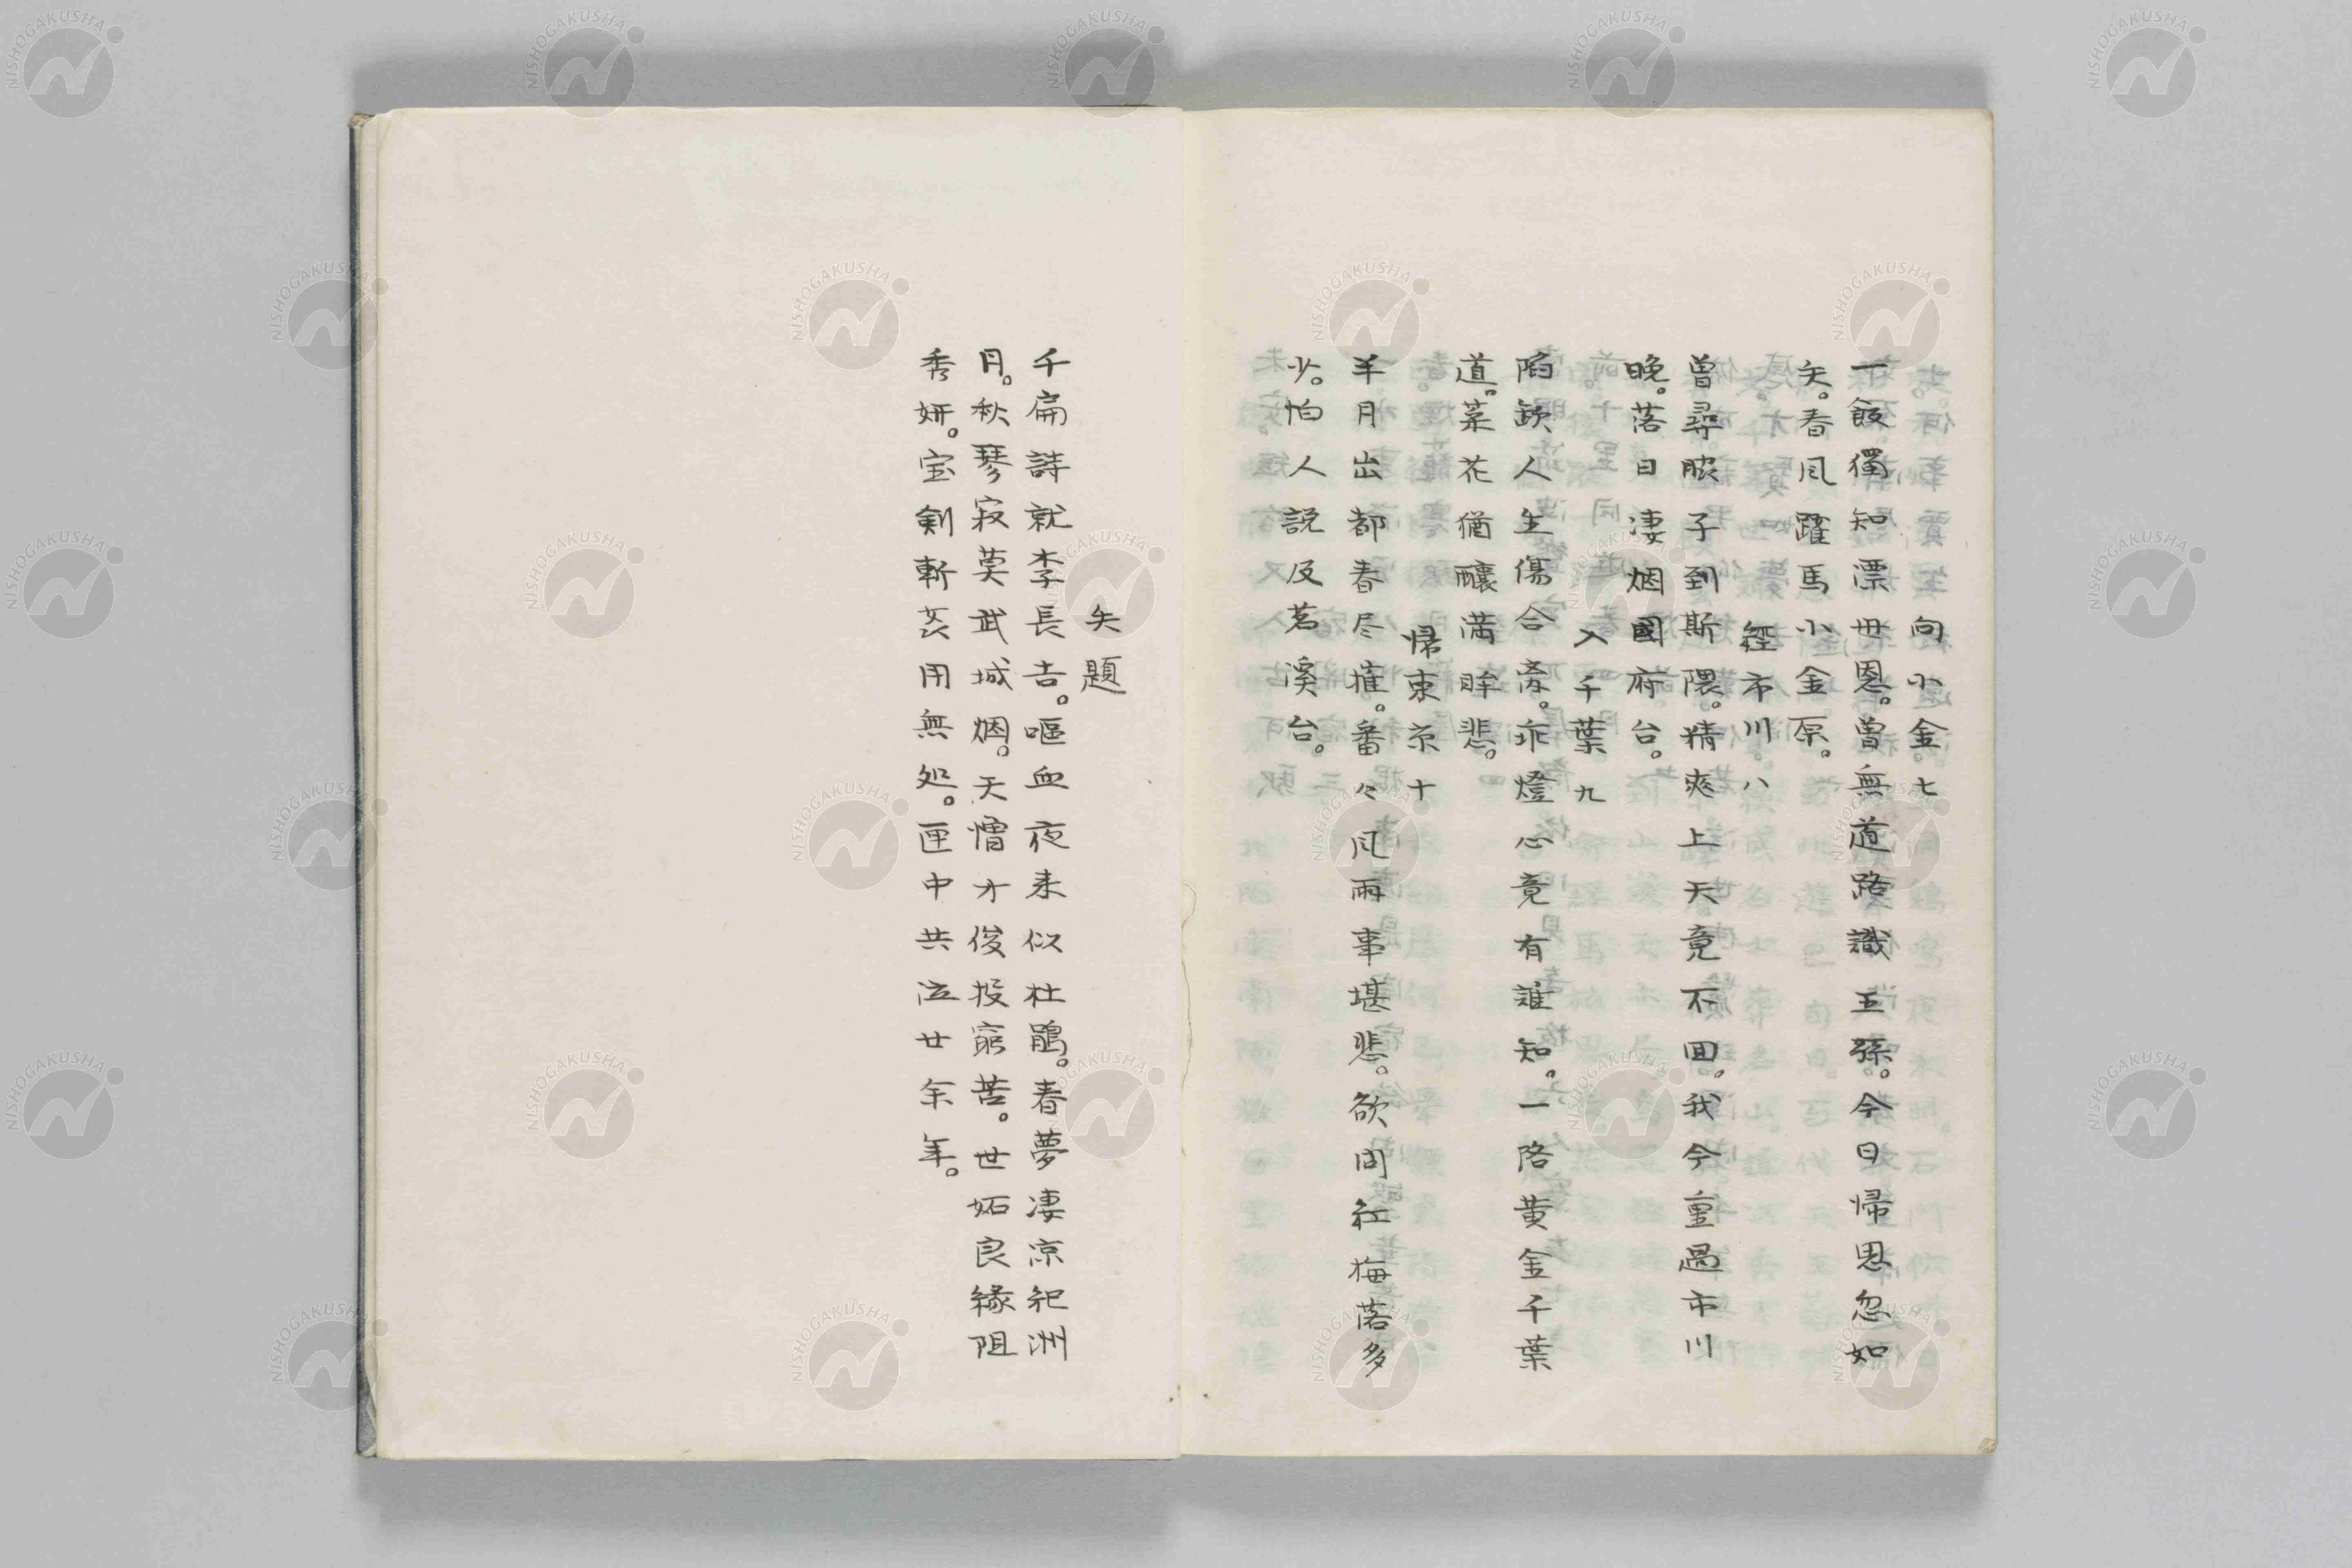 向小金。七
一飯獨知漂毋恩。曽無道路識王孫。今日帰思忽如
矢。春風躍馬小金原。
經市川八
曽尋勝子到斯隈。精爽上天竟不囬。我今重過市川
晩。落日凄烟國府台。
入千葉九
陷缺人生傷合離。乖燈心竟有誰知。一路黄金千葉
道。菜花猶釀満眸悲。
帰東京十
半月出都春尽摧。番々風雨事堪悲。欲問紅梅落多
少。怕人説及茗溪台。
失題
千扁詩就李長吉。嘔血夜来似杜鵑。春夢凄凉杞洲
月。秋琴寂莫武城烟。天慴才俊投窮苦。世妬良緣阻
秀妍。宝剣斬
用無処。匣中共泣廿余年。
NISHOGAKUSHA